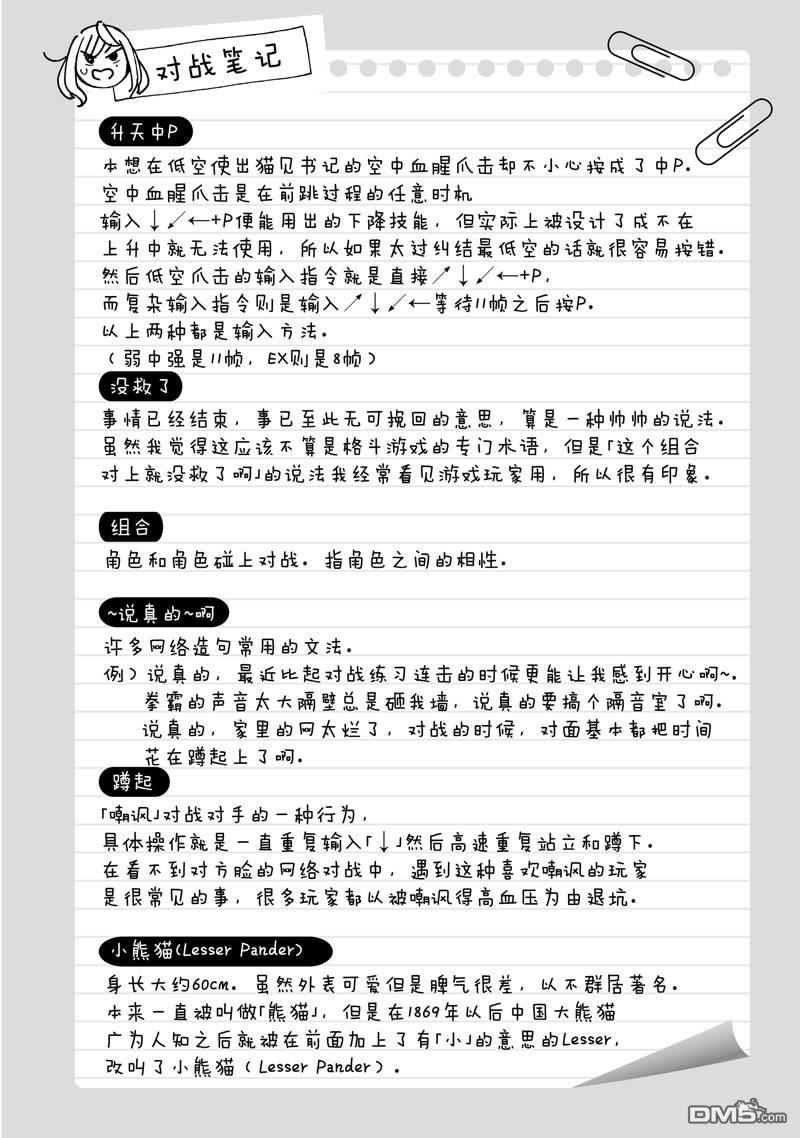 对战笔记
升天中P
本想在低空使出猫见书记的空中血腥爪击却不小心按成了中P.
空中血腥爪击是在前跳过程的任意时机
输入↓↙←+P便能用出的下降技能, 但实际上被设计了成不在
上升中就无法使用, 所以如果太过纠结最低空的话就很容易按错.
然后低空爪击的输入指令就是直接↗↓↙←+P,
而复杂输入指令则是输入↗↓↙←等待11帧之后按P.
以上两种都是输入方法.
(弱中强是11帧, EX则是8帧)
没救了
事情已经结束, 事已至此无可挽回的意思, 算是一种帅帅的说法.
虽然我觉得这应该不算是格斗游戏的专门术语, 但是「这个组合
对上就没救了啊」的说法我经常看见游戏玩家用, 所以很有印象.
组合
角色和角色碰上对战. 指角色之间的相性.
~说真的~啊
许多网络造句常用的文法.
例)说真的, 最近比起对战练习连击的时候更能让我感到开心啊~.
拳霸的声音太大隔壁总是砸我墙, 说真的要搞个隔音室了啊.
说真的, 家里的网太烂了, 对战的时候, 对面基本都把时间
花在蹲起上了啊.
蹲起
「嘲讽」对战对手的一种行为,
具体操作就是一直重复输入「↓」然后高速重复站立和蹲下.
在看不到对方脸的网络对战中, 遇到这种喜欢嘲讽的玩家
是很常见的事, 很多玩家都以被嘲讽得高血压为由退坑.
小熊猫(Lesser Pander)
身长大约60cm. 虽然外表可爱但是脾气很差, 以不群居著名.
本来一直被叫做「熊猫」, 但是在1869年以后中国大熊猫
广为人知之后就被在前面加上了有「小」的意思的Lesser,
改叫了小熊猫(Lesser Pander).
DM5.com